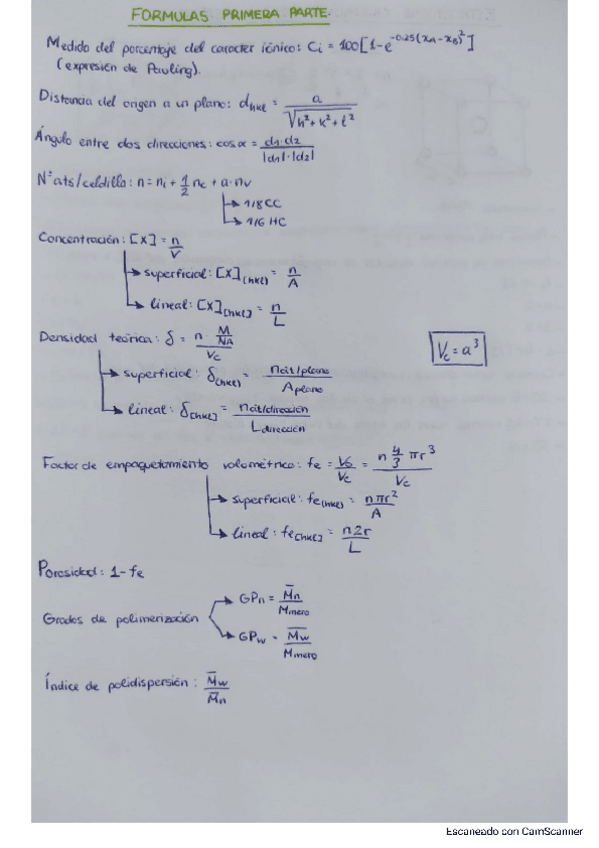 FORMULAS PRIMERA PARTE.
Medido del porcentaje del caracter iónico: Ci = 100[1-e^-0.25(xA-xB)²]
(expresión de Pauling).
Distancia del origen a un plano: dhkl = a / √h²+k²+l²
Ángulo entre dos direcciones: cos α = d1·d2 / |d1|·|d2|
Nº ats/celdilla: n = ni + 1/2 nc + a·nv
→ 1/8 CC
→ 1/6 HC
Concentración: [X] = n/V
→ superficial: [X](hkl) = n/A
→ lineal: [X][hkl] = n/L
Densidad teórica: δ = n· M/NA / Vc
Vc = a³
→ superficial: δ(hkl) = nat/plano / Aplano
→ lineal: δ[hkl] = nat/dirección / Ldirección
Factor de empaquetamiento volométrico: fe = Vo/Vc = n 4/3 πr³ / Vc
→ superficial: fe(hkl) = nπr² / A
→ lineal: fe[hkl] = n2r / L
Porosidad: 1-fe
Grados de polimerización
→ GPn = M̄n / Mmero
→ GPw = M̄w / Mmero
Índice de polidispersión: M̄w / M̄n
Escaneado con CamScanner